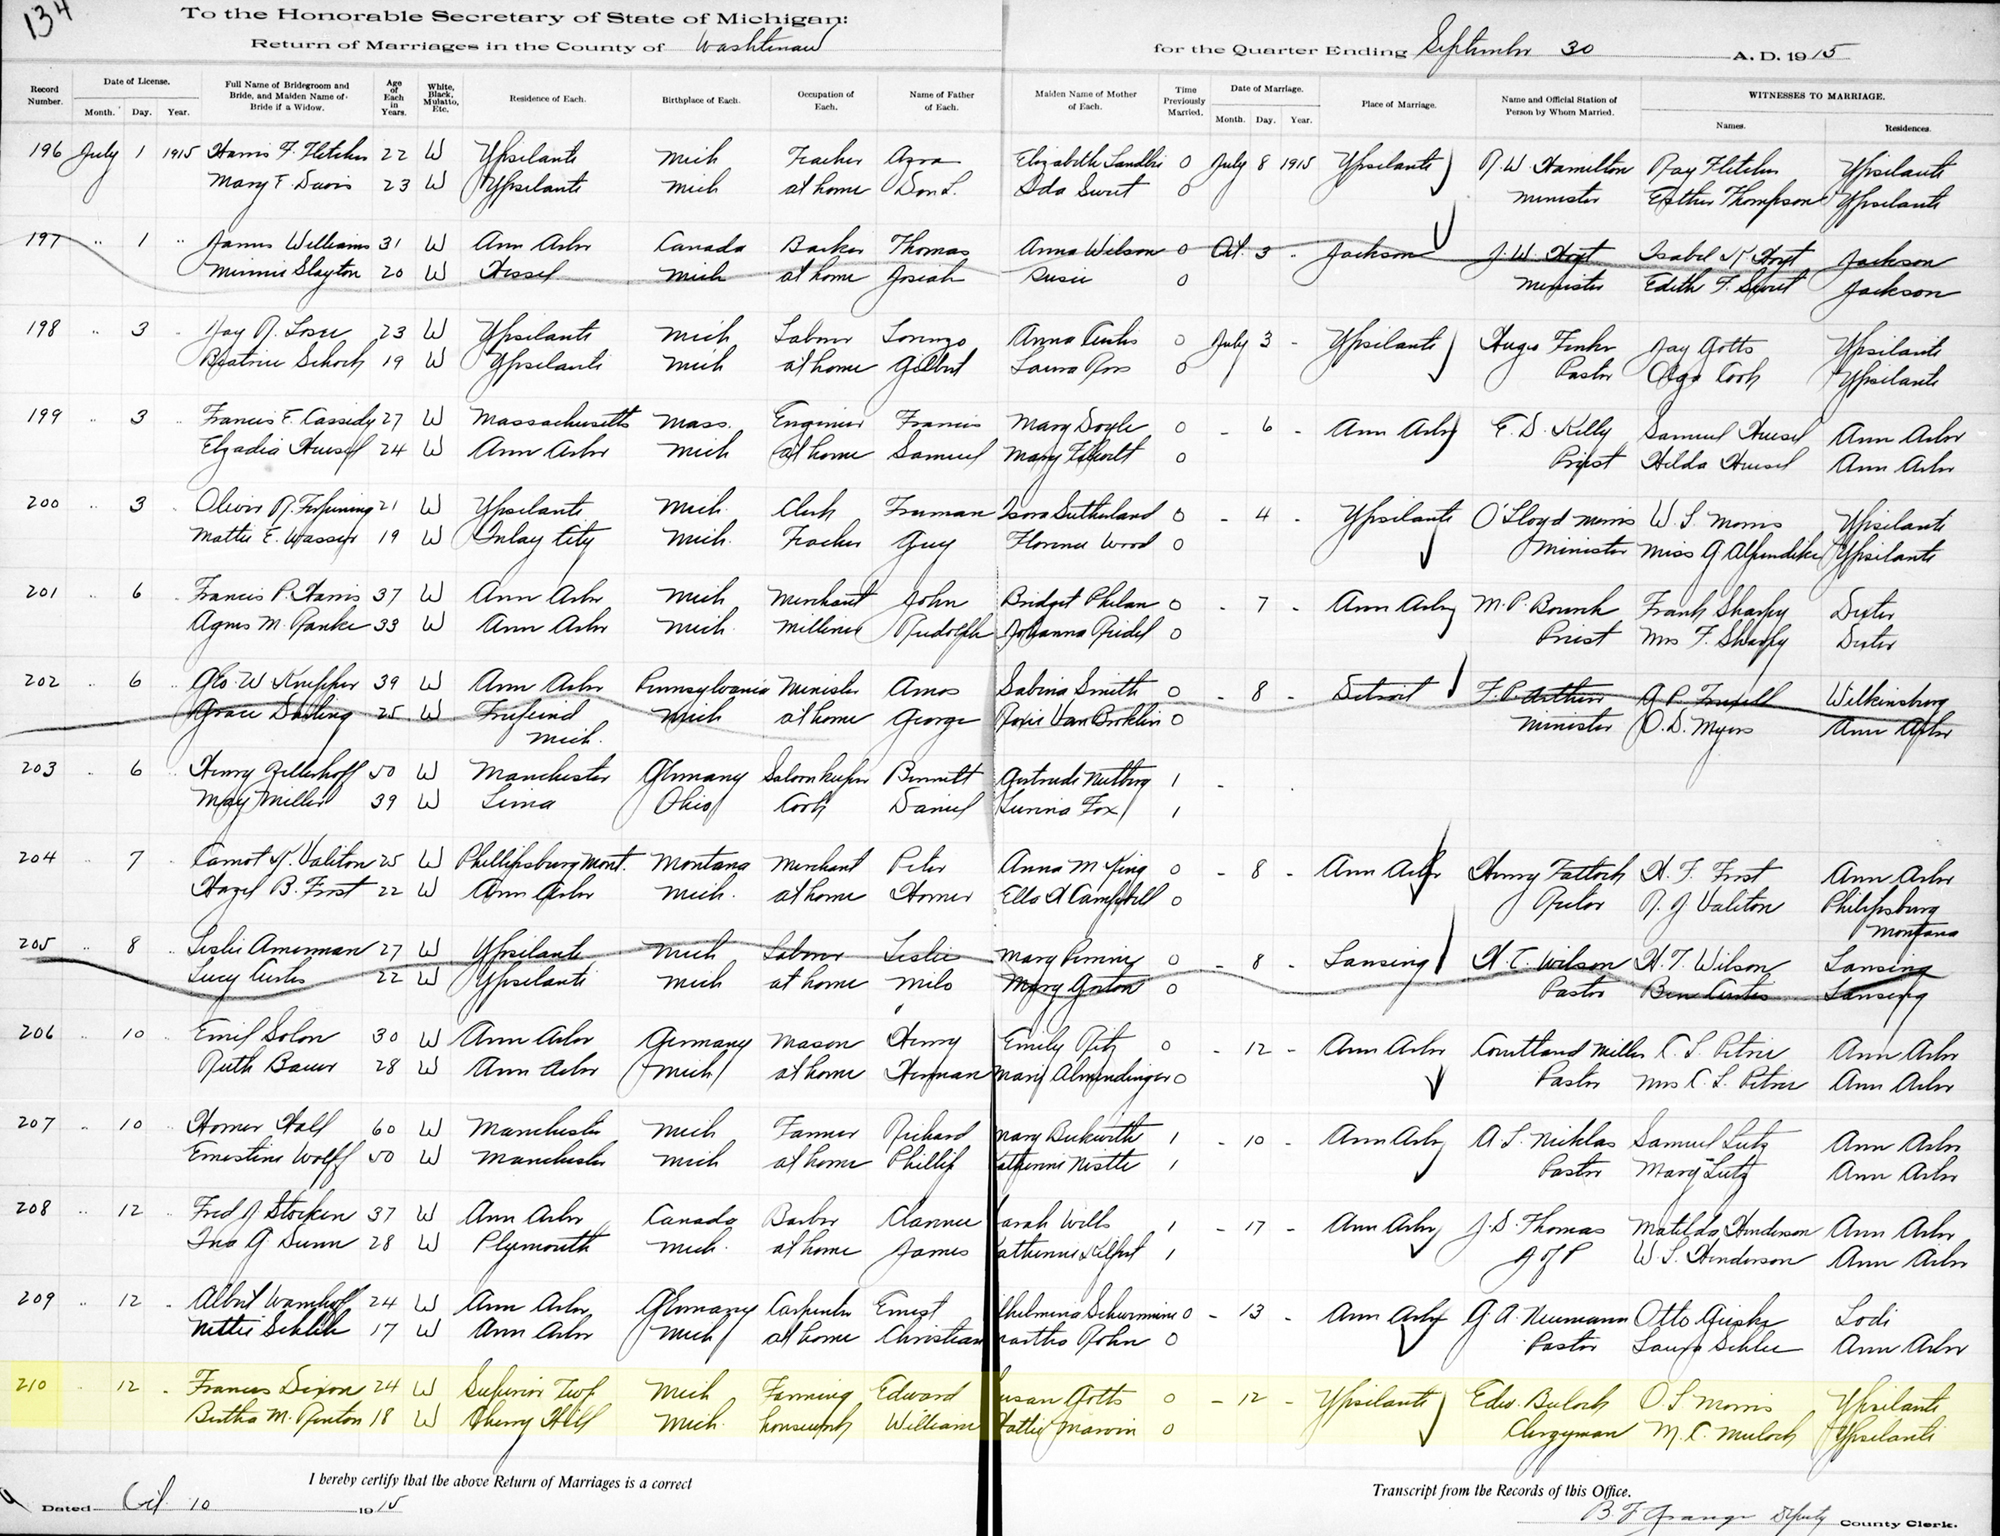 134
To the Honorable Secretary of State of Michigan:
Return of Marriages in the County of Washtenaw for the Quarter Ending September 30 A. D. 1915
Record Number. Date of License. Month. Day. Year. Full Name of Bridegroom and Bride, and Maiden Name of Bride if a Widow. Age of Each in Years. White, Black, Mulatto, Etc. Residence of Each. Birthplace of Each. Occupation of Each. Name of Father of Each. Maiden Name of Mother of Each. Time Previously Married. Date of Marriage. Month. Day. Year. Place of Marriage. Name and Official Station of Person by Whom Married. WITNESSES TO MARRIAGE. Names. Residences.
196 July 1 1915 Harris F. Fletcher 22 W Ypsilanti Mich Teacher Azra Elizabeth 0 July 8 1915 Ypsilanti R. W. Hamilton Ray Fletcher Ypsilanti
Mary F. Davis 23 W Ypsilanti Mich at home Don L. Ida Sweet 0 Minister Esther Thompson Ypsilanti
197 " 1 " James Williams 31 W Ann Arbor Canada Thomas Anna Wilson 0 Oct. 3 - Jackson J. W. Hoyt Isabel K Hoyt Jackson
Minnie Slayton 20 W Hessel Mich at home Josiah Susie 0 Minister Edith F. Sweet Jackson
198 " 3 " Jay R. 23 W Ypsilanti Mich Labour Lorenzo Anna Curtis 0 July 3 - Ypsilanti Hugo Jay Gotts Ypsilanti
Beatrice Schoch 19 W Ypsilanti Mich at home Gilbert Laura Ross 0 Pastor Olga Cook Ypsilanti
199 " 3 Francis E. Cassidy 27 W Massachusetts Mass. Engineer Francis Mary Doyle 0 - 6 - Ann Arbor E. D. Kelly Samuel Heusel Ann Arbor
Elgadia Heusel 24 W Ann Arbor Mich at home Samuel Mary 0 Priest Hilda Heusel Ann Arbor
200 " 3 Oliver R. 21 W Ypsilanti Mich. Clerk Truman Sutherland 0 - 4 - Ypsilanti O'Lloyd Morris W. S. Morris Ypsilanti
Mattie E. Wasser 19 W Imlay City Mich. Teacher Guy Florence Wood 0 Minister Miss G Ypsilanti
201 " 6 Francis P. Harris 37 W Ann Arbor Mich Merchant John Bridget Philan 0 - 7 - Ann Arbor M. P. Bourk Frank Sharpy Dexter
Agnes M. Ranke 33 W Ann Arbor Mich. Milliner Rudolph Johanna Riedel 0 Priest Mrs F. Sharpy Dexter
202 " 6 Geo. W Knepper 39 W Ann Arbor Pennsylvania Minister Amos Sabina Smith 0 - 8 - Detroit F. P. Arthur Wilkinsburg
Grace Darling 25 W Mich at home George Roxie Van Brocklin 0 Minister O. D. Myers Ann Arbor
Mich.
203 " 6 Henry 50 W Manchester Germany Saloon keeper Bennett Gertrude 1 -
May Miller 39 W Lima Ohio Cook Daniel Fox 1
204 " 7 Carnot K. Valiton 25 W Phillipsburg Mont. Montana Merchant Peter Anna M King 0 - 8 - Ann Arbor Henry Tatlock H. F. Frost Ann Arbor
Hazel B. Frost 22 W Ann Arbor Mich. at home Homer Ella A Campbell 0 Rector R. J Valiton Philipsburg
Montana
205 " 8 Leslie Amerman 27 W Ypsilanti Mich Labour Leslie Mary 0 - 8 - Lansing H. T. Wilson H. T. Wilson Lansing
Lucy Curtis 22 W Ypsilanti Mich at home Milo Mary Gorton 0 Pastor Ben Curtis Lansing
206 10 Emil Solon 30 W Ann Arbor Germany Mason Henry Emily 0 - 12 - Ann Arbor Courtland Miller C. L. Ann Arbor
Ruth Bauer 28 W Ann Arbor Mich at home Herman Mary Almendinger 0 Pastor Mrs C. L. Ann Arbor
207 " 10 Homer Hall 60 W Manchester Mich Farmer Richard Mary Beckwith 1 - 10 - Ann Arbor A. L. Nicklas Samuel Lutz Ann Arbor
Ernestine Wolff 50 W Manchester Mich at home Phillip 1 Pastor Mary Lutz Ann Arbor
208 " 12 Fred J Stocken 37 W Ann Arbor Canada Barber Clarence Sarah Wills 1 - 17 - Ann Arbor J. D. Thomas Matilda Henderson Ann Arbor
Ina G. Dunn 28 W Plymouth Mich. at home James 1 J of P W. S. Henderson Ann Arbor
209 " 12 - Albert 24 W Ann Arbor Germany Carpenter Ernest 0 - 13 - Ann Arbor G. A. Neumann Otto Lodi
Nettie 17 W Ann Arbor Mich at home Christian Martha Rohn 0 Pastor Laura Schlee Ann Arbor
210 12 - Francis Dixon 24 W Superior Twp Mich Farming Edward Susan Gotts 0 - 12 - Ypsilanti Edw. O. S. Morris Ypsilanti
Bertha M. Renton 18 W Cherry Hill Mich. housework William Hattie Marvin 0 Clergyman M. C. Ypsilanti
I hereby certify that the above Return of Marriages is a correct Transcript from the Records of this Office.
Dated Oct. 10 1915 B. F. Deputy County Clerk.